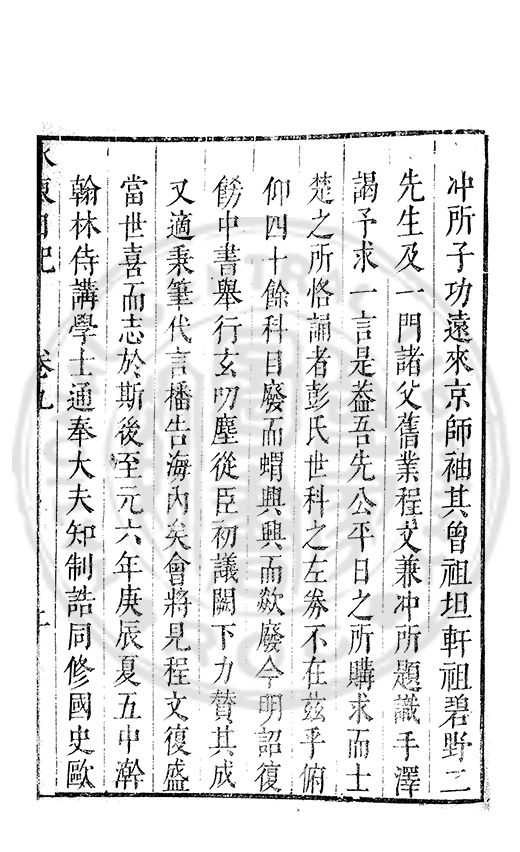 冲所子功遠來京師袖其曾祖坦軒祖碧野二
先生及一門諸父舊業程文兼冲所題識手澤
謁予求一言是葢吾先公平日之所購求而士
楚之所恪誦者彭氏世科之左劵不在茲乎俯
仰四十餘科目廢而蝟興興而欻廢今明詔復
飭中書舉行玄叨塵從臣初議闕下力賛其成
又適秉筆代言播告海內矣會將見程文復盛
當世喜而志於斯後至元六年庚辰夏五中澣
翰林侍講學士通奉大夫知制誥同修國史歐
水東日記 卷九